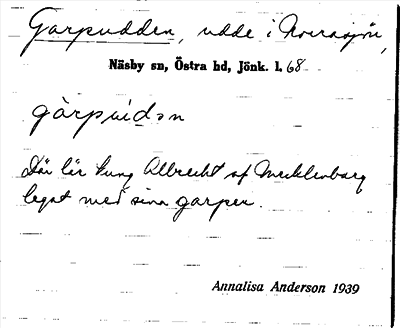 Garpudden, udde i Norrasjön,
Näsby sn, Östra hd, Jönk. l. 68
gàrpudən
Där lär kung Albrecht af Mecklenburg
legat med sina garper.
Annalisa Anderson 1939